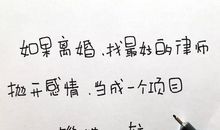 如果离婚、找最好的律师
抛开感情、当成一个项目